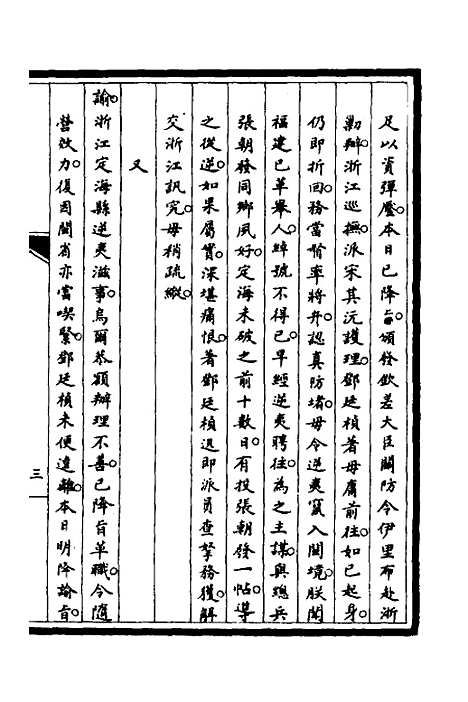 足以資彈壓。本日已降旨。頒發欽差大臣關防。令伊里布赴浙
勦辦。浙江巡撫。派宋其沅護理。鄧廷楨著毋庸前往。如已起身。
仍即折回。務當督率將弁。認真防堵。毋令逆夷竄入閩境。朕聞
福建已革舉人。綽號不得已。早經逆夷聘往。為之主謀。與總兵
張朝發同鄉夙好。定海未破之前十數日。有投張朝發一帖。導
之從逆。如果屬實。深堪痛恨。著鄧廷楨迅即派員查拏。務獲。解
交浙江訊究。毋稍疏縱。
又
諭。浙江定海縣逆夷滋事。烏爾恭額辦理不善。已降旨革職。令隨
營效力。復因閩省亦當喫緊。鄧廷楨未便遠離。本日明降諭旨。
三